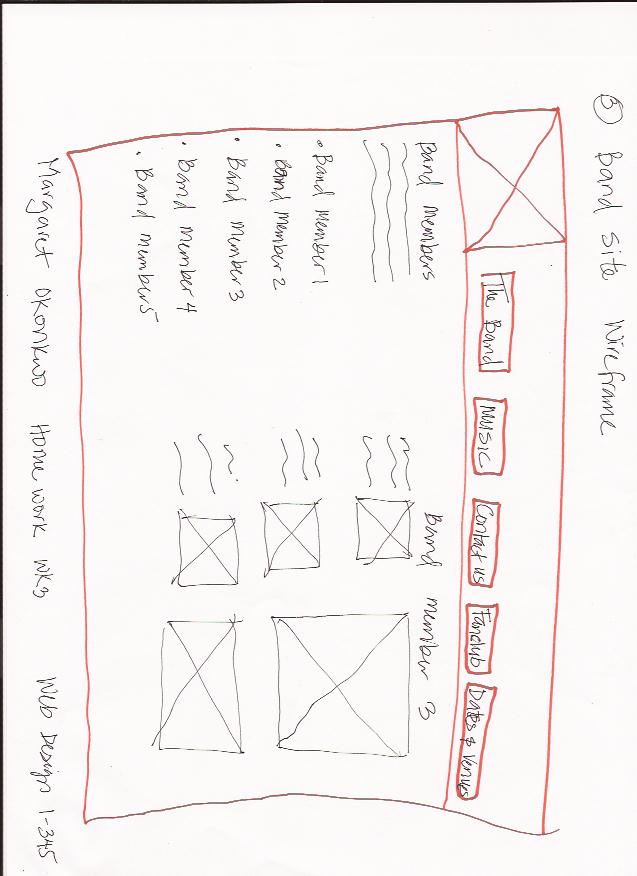 ③ Band Site Wireframe
The Band
Music
Contact us
Fanclub
Dates & Venues
Band Members
• Band Member 1
• Band Member 2
• Band Member 3
• Band Member 4
• Band Member 5
Band member 3
Margaret Okonkwo Home work WK3 Web Design 1-345